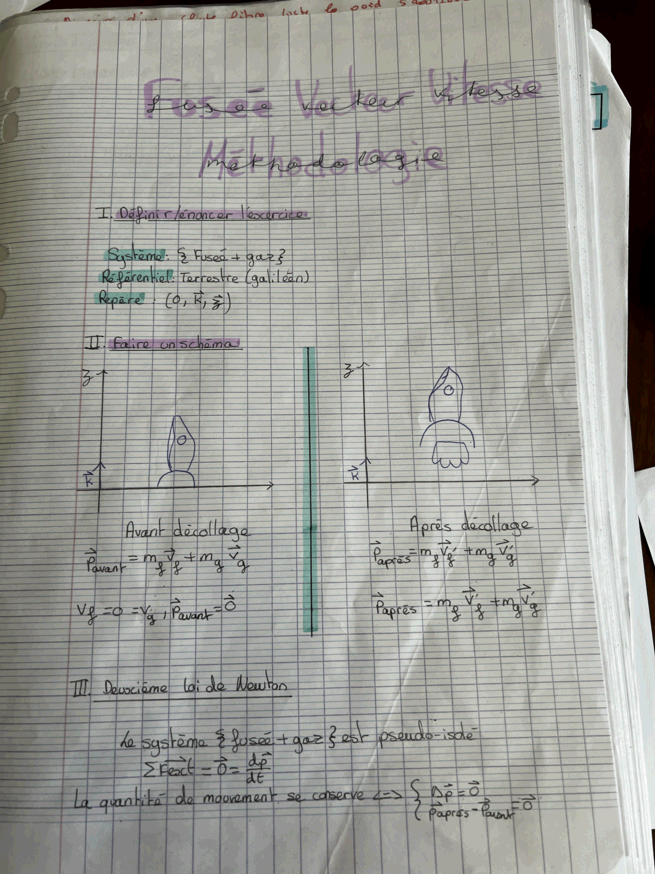 Fusée Vecteur Vitesse
Méthodologie
I. Définir/énoncer l'exercice
Système: {Fuseé + gaz}
Référentiel: Terrestre (galiléen)
Repère : (O, k⃗, z⃗)
II. Faire un schéma
z
z
k⃗
k⃗
Avant décollage
P⃗avant = m_f v⃗_f + m_g v⃗_g
V_f = 0 = V_g, P⃗avant = 0⃗
Après décollage
P⃗après = m_f v⃗'_f + m_g v⃗'_g
P⃗après = m_f v⃗'_f + m_g v⃗'_g
III. Deuxième loi de Newton
Le système {fuseé + gaz} est pseudo-isolé
ΣF⃗ext = 0⃗ = dp⃗/dt
La quantité de mouvement se conserve <=> { Δp⃗ = 0⃗
{ p⃗après - p⃗avant = 0⃗